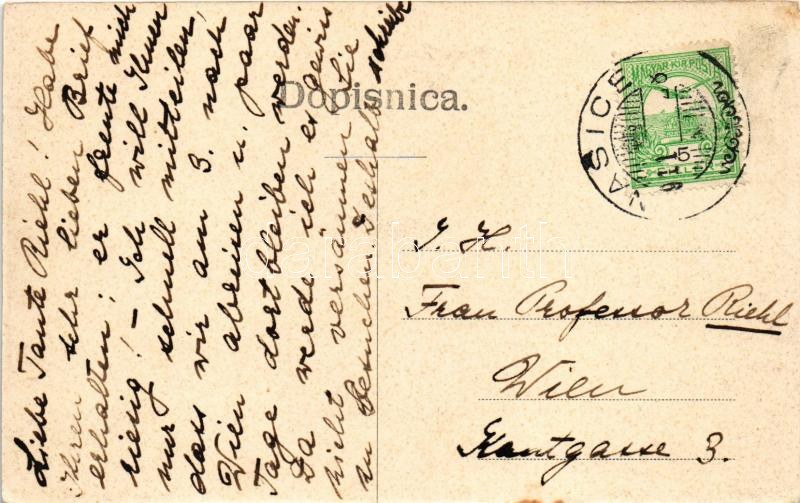 Liebe Tante Riehl! Habe
Ihren sehr lieben Brief
erhalten; er freute mich
riesig! – Ich will Ihnen
nur schnell mitteilen,
dass wir am 3. nach
Wien abreisen u. paar
Tage dort bleiben werden.
Da werde ich es gewiss
nicht versäumen Sie
zu besuchen. Deshalb schreibe
Dopisnica.
MAGYAR·KIR·POSTA
5
NAŠICE
I. H.
Frau Professor Riehl
Wien
Kantgasse 3.